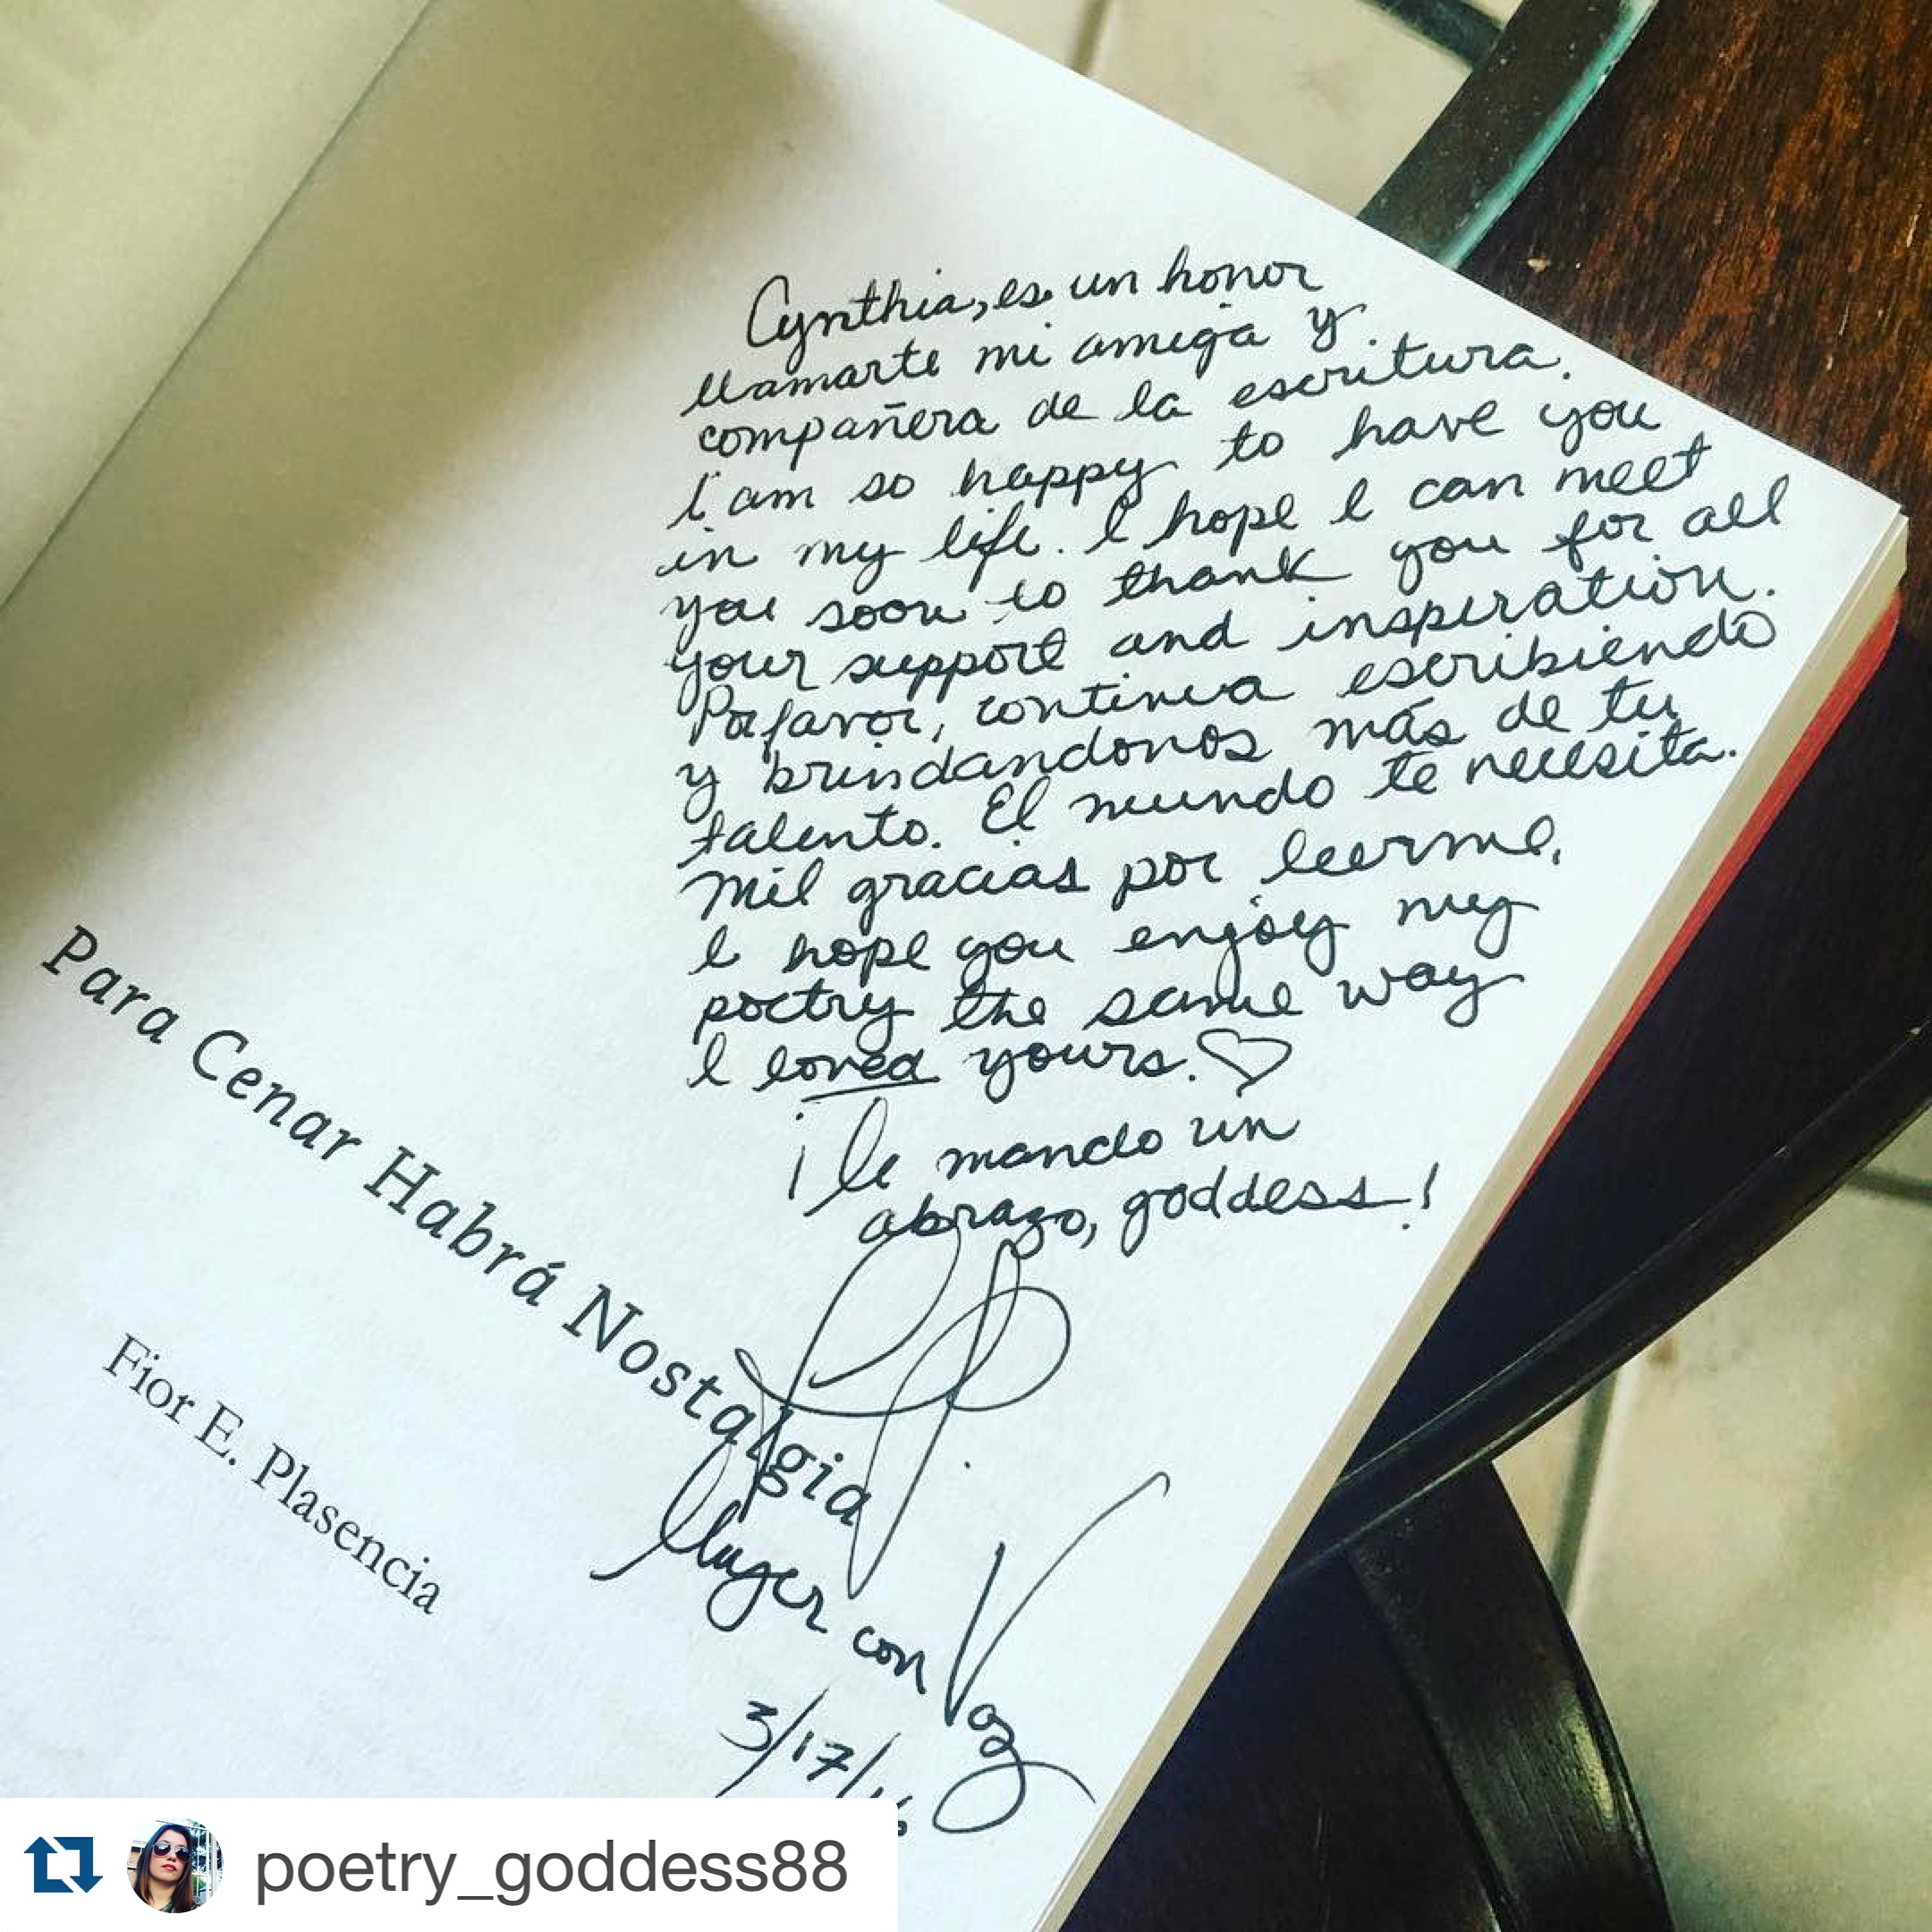 Cynthia, es un honor
llamarte mi amiga y
compañera de la escritura.
I am so happy to have you
in my life. I hope I can meet
you soon to thank you for all
your support and inspiration.
Porfavor, continua escribiendo
y brindandonos más de tu
talento. El mundo te necesita.
Mil gracias por leerme,
I hope you enjoy my
poetry the same way
I loved yours. ♡
¡le mando un
abrazo, goddess!
Para Cenar Habrá Nostalgia
Fior E. Plasencia
Mujer con Voz
3/17/16
poetry_goddess88